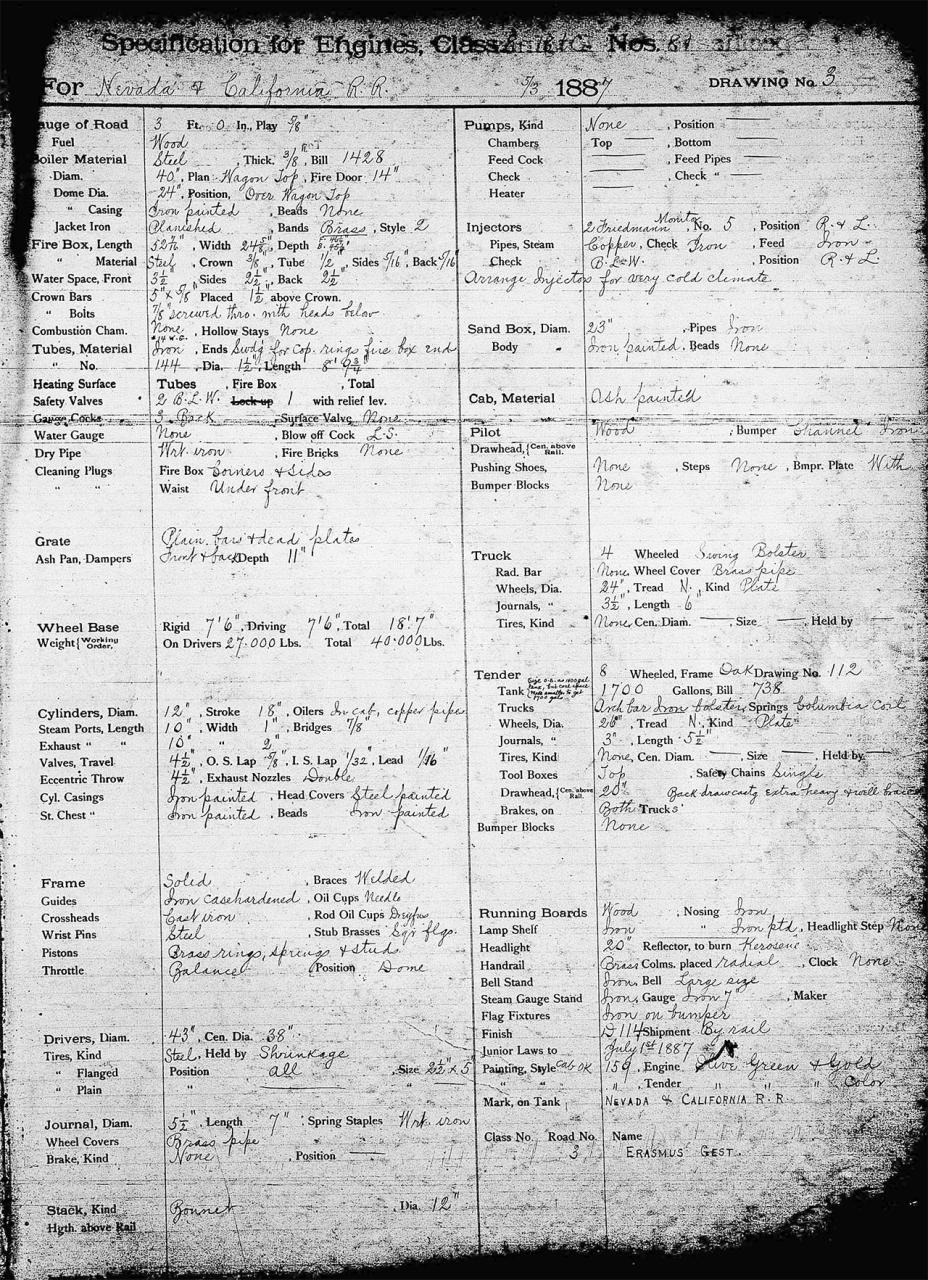 Specification for Engines, Class Nos.
For Nevada & California R. R. 5/3 1887 DRAWING No. 3
Gauge of Road 3 Ft. 0 In., Play 5/8"
Fuel Wood
Boiler Material Steel , Thick. 3/8 , Bill 1428
Diam. 40", Plan Wagon Top , Fire Door 14"
Dome Dia. 24", Position, Over Wagon Top
" Casing Iron painted , Beads None
Jacket Iron Planished , Bands Brass , Style 2
Fire Box, Length , Width , Depth
" Material Steel, Crown 3/8", Tube 1/2", Sides 5/16, Back 5/16"
Water Space, Front 3½", Sides 2½", Back 2½"
Crown Bars 5" x 5/8" Placed 1½" above Crown.
" Bolts 7/8" screwed thro. with heads below
Combustion Cham. None , Hollow Stays None
Tubes, Material Iron , Ends Swdg for Cop. rings fire box end
" No. 144 , Dia. 1½", Length 8' 9¾"
Heating Surface Tubes , Fire Box , Total
Safety Valves 2 B.L.W. Lock-up 1 with relief lev.
Gauge Cocks 3 Back , Surface Valve None
Water Gauge None , Blow off Cock L.S.
Dry Pipe Wrt iron , Fire Bricks None
Cleaning Plugs Fire Box Corners & Sides
" " Waist Under front
Grate Plain bars & dead plates
Ash Pan, Dampers Front & back Depth 11"
Wheel Base Rigid 7' 6", Driving 7' 6", Total 18' 7"
Weight { Working Order, On Drivers 27.000 Lbs. Total 40.000 Lbs.
Cylinders, Diam. 12", Stroke 18", Oilers In cab, copper pipe
Steam Ports, Length 10", Width 1", Bridges 7/8"
Exhaust " " 10" " 2"
Valves, Travel 4½", O. S. Lap 5/8", I. S. Lap 1/32, Lead 1/16"
Eccentric Throw 4½", Exhaust Nozzles Double
Cyl. Casings Iron painted , Head Covers Steel painted
St. Chest " Iron painted , Beads Iron painted
Frame Solid , Braces Welded
Guides Iron casehardened , Oil Cups Needle
Crossheads Cast iron , Rod Oil Cups Dreyfus
Wrist Pins Steel , Stub Brasses Sqr flgs.
Pistons Brass rings, springs & studs
Throttle Balance , Position Dome
Drivers, Diam. 43", Cen. Dia. 38"
Tires, Kind Steel, Held by Shrinkage
" Flanged Position all , Size 2½" x 5"
" Plain "
Journal, Diam. 5½", Length 7" , Spring Staples Wrt. iron
Wheel Covers Brass pipe
Brake, Kind None , Position —
Stack, Kind Bonnet , Dia. 12"
Hgth. above Rail
Pumps, Kind None , Position —
Chambers Top — , Bottom —
Feed Cock — , Feed Pipes —
Check — , Check " —
Heater
Injectors 2 Friedmann Monitor , No. 5 , Position R. & L.
Pipes, Steam Copper, Check Iron , Feed Iron
Check B.L.W. , Position R. & L.
Arrange Injectors for very cold climate
Sand Box, Diam. 23" , Pipes Iron
Body Iron painted , Beads None
Cab, Material Ash painted
Pilot Wood , Bumper Channel Iron
Drawhead, { Cen. above Rail.
Pushing Shoes, None , Steps None , Bmpr. Plate With
Bumper Blocks None
Truck 4 Wheeled Swing Bolster
Rad. Bar None, Wheel Cover Brass pipe
Wheels, Dia. 24", Tread N. , Kind Plate
Journals, " 3½", Length 6"
Tires, Kind None, Cen. Diam. — , Size — , Held by —
Tender 8 Wheeled, Frame Oak Drawing No. 112
Tank 1700 Gallons, Bill 738
Trucks Arch bar Iron bolster, Springs Columbia Coil
Wheels, Dia. 26", Tread N. , Kind Plate
Journals, " 3", Length 5½"
Tires, Kind None, Cen. Diam. — , Size — , Held by —
Tool Boxes Top , Safety Chains Single
Drawhead, { Cen. above Rail. 20" Back draw castg extra heavy & well braced
Brakes, on Both Trucks
Bumper Blocks None
Running Boards Wood , Nosing Iron
Lamp Shelf Iron " Iron ptd , Headlight Step None
Headlight 20" Reflector, to burn Kerosene
Handrail Brass Colms. placed radial , Clock None
Bell Stand Iron, Bell Large size
Steam Gauge Stand Iron, Gauge Iron 7" , Maker
Flag Fixtures Iron on bumper
Finish D 114 Shipment By rail
Junior Laws to July 1st 1887
Painting, Style Cab OK 159, Engine Olive Green & Gold
" " ", Tender " " " Color
Mark, on Tank NEVADA & CALIFORNIA R. R.
Class No. Road No. Name
3 ERASMUS GEST.